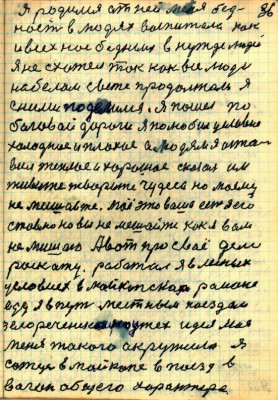 36
Я родился от ней меня бед-
ность в людях воспитала как
и всех нас бедных в нужде людей
я не схотел так как все люди
на белом свете продолжал я
с ними поделился. Я пошел по
боговой дороги я полюбил условие
холодное и плохое а людям я оста-
вил теплое и хорошое сказал им
живите творите чудеса но моему
не мешайте. Моё это ваше
ставлю но вы не мешайте как я вам
не мешаю. А вот про своё дело
раскажу. работал я в лесных
условиях в майкопском районе
еду я в путь местным поездом
меня такого окружила Я
в майкопе в поезд в
вагон общего характера